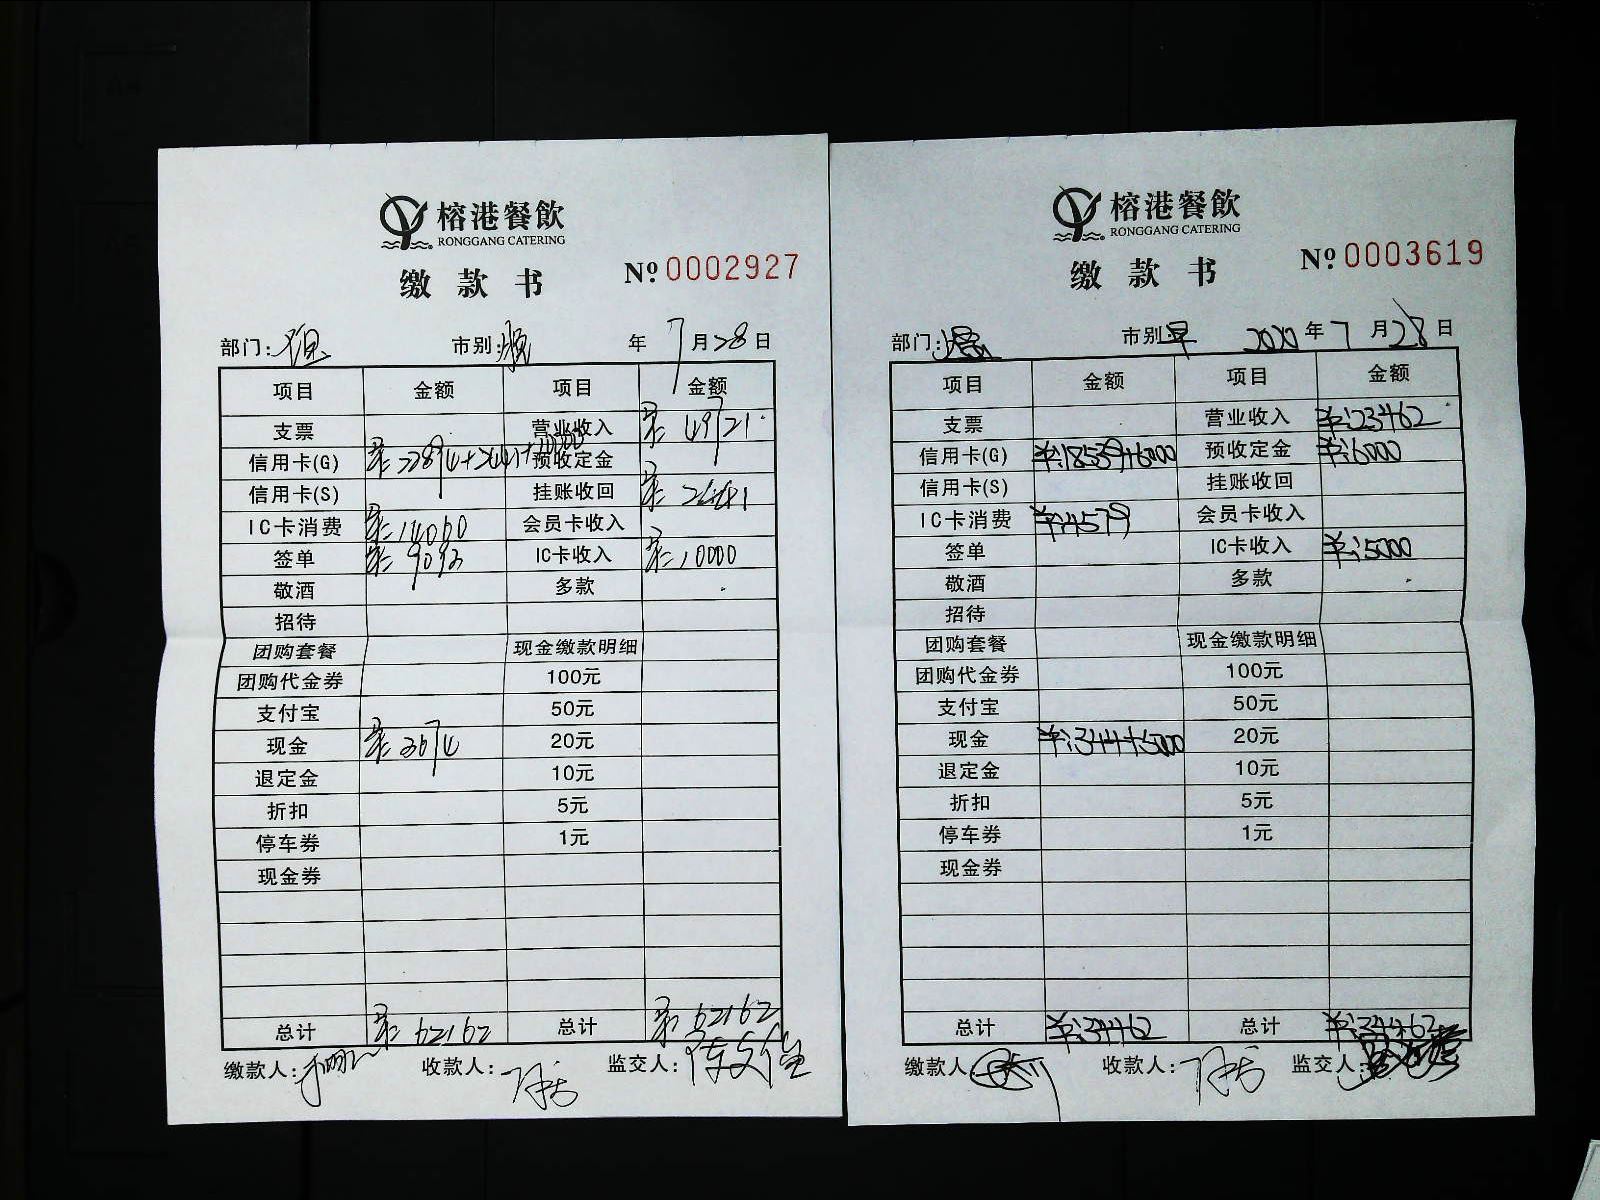 榕港餐飲
RONGGANG CATERING
缴款书
Nº 0002927
部门: 市别:晚 年 7月28日
项目 金额 项目 金额
支票 营业收入 49721
信用卡(G) 22894+2441+10000 预收定金
信用卡(S) 挂账收回 2441
IC卡消费 14060 会员卡收入
签单 9093 IC卡收入 10000
敬酒 多款
招待
团购套餐 现金缴款明细
团购代金券 100元
支付宝 50元
现金 3674 20元
退定金 10元
折扣 5元
停车券 1元
现金券
总计 62162 总计 62162
缴款人: 收款人: 监交人:
榕港餐飲
RONGGANG CATERING
缴款书
Nº 0003619
部门: 市别:早 2020年7月28日
项目 金额 项目 金额
支票 营业收入 ¥:23462
信用卡(G) ¥:18539+6000 预收定金 ¥:6000
信用卡(S) 挂账收回
IC卡消费 ¥:4579 会员卡收入
签单 IC卡收入 ¥:5000
敬酒 多款
招待
团购套餐 现金缴款明细
团购代金券 100元
支付宝 50元
现金 ¥:344+5000 20元
退定金 10元
折扣 5元
停车券 1元
现金券
总计 ¥:34462 总计 ¥:34462
缴款人: 收款人: 监交人: